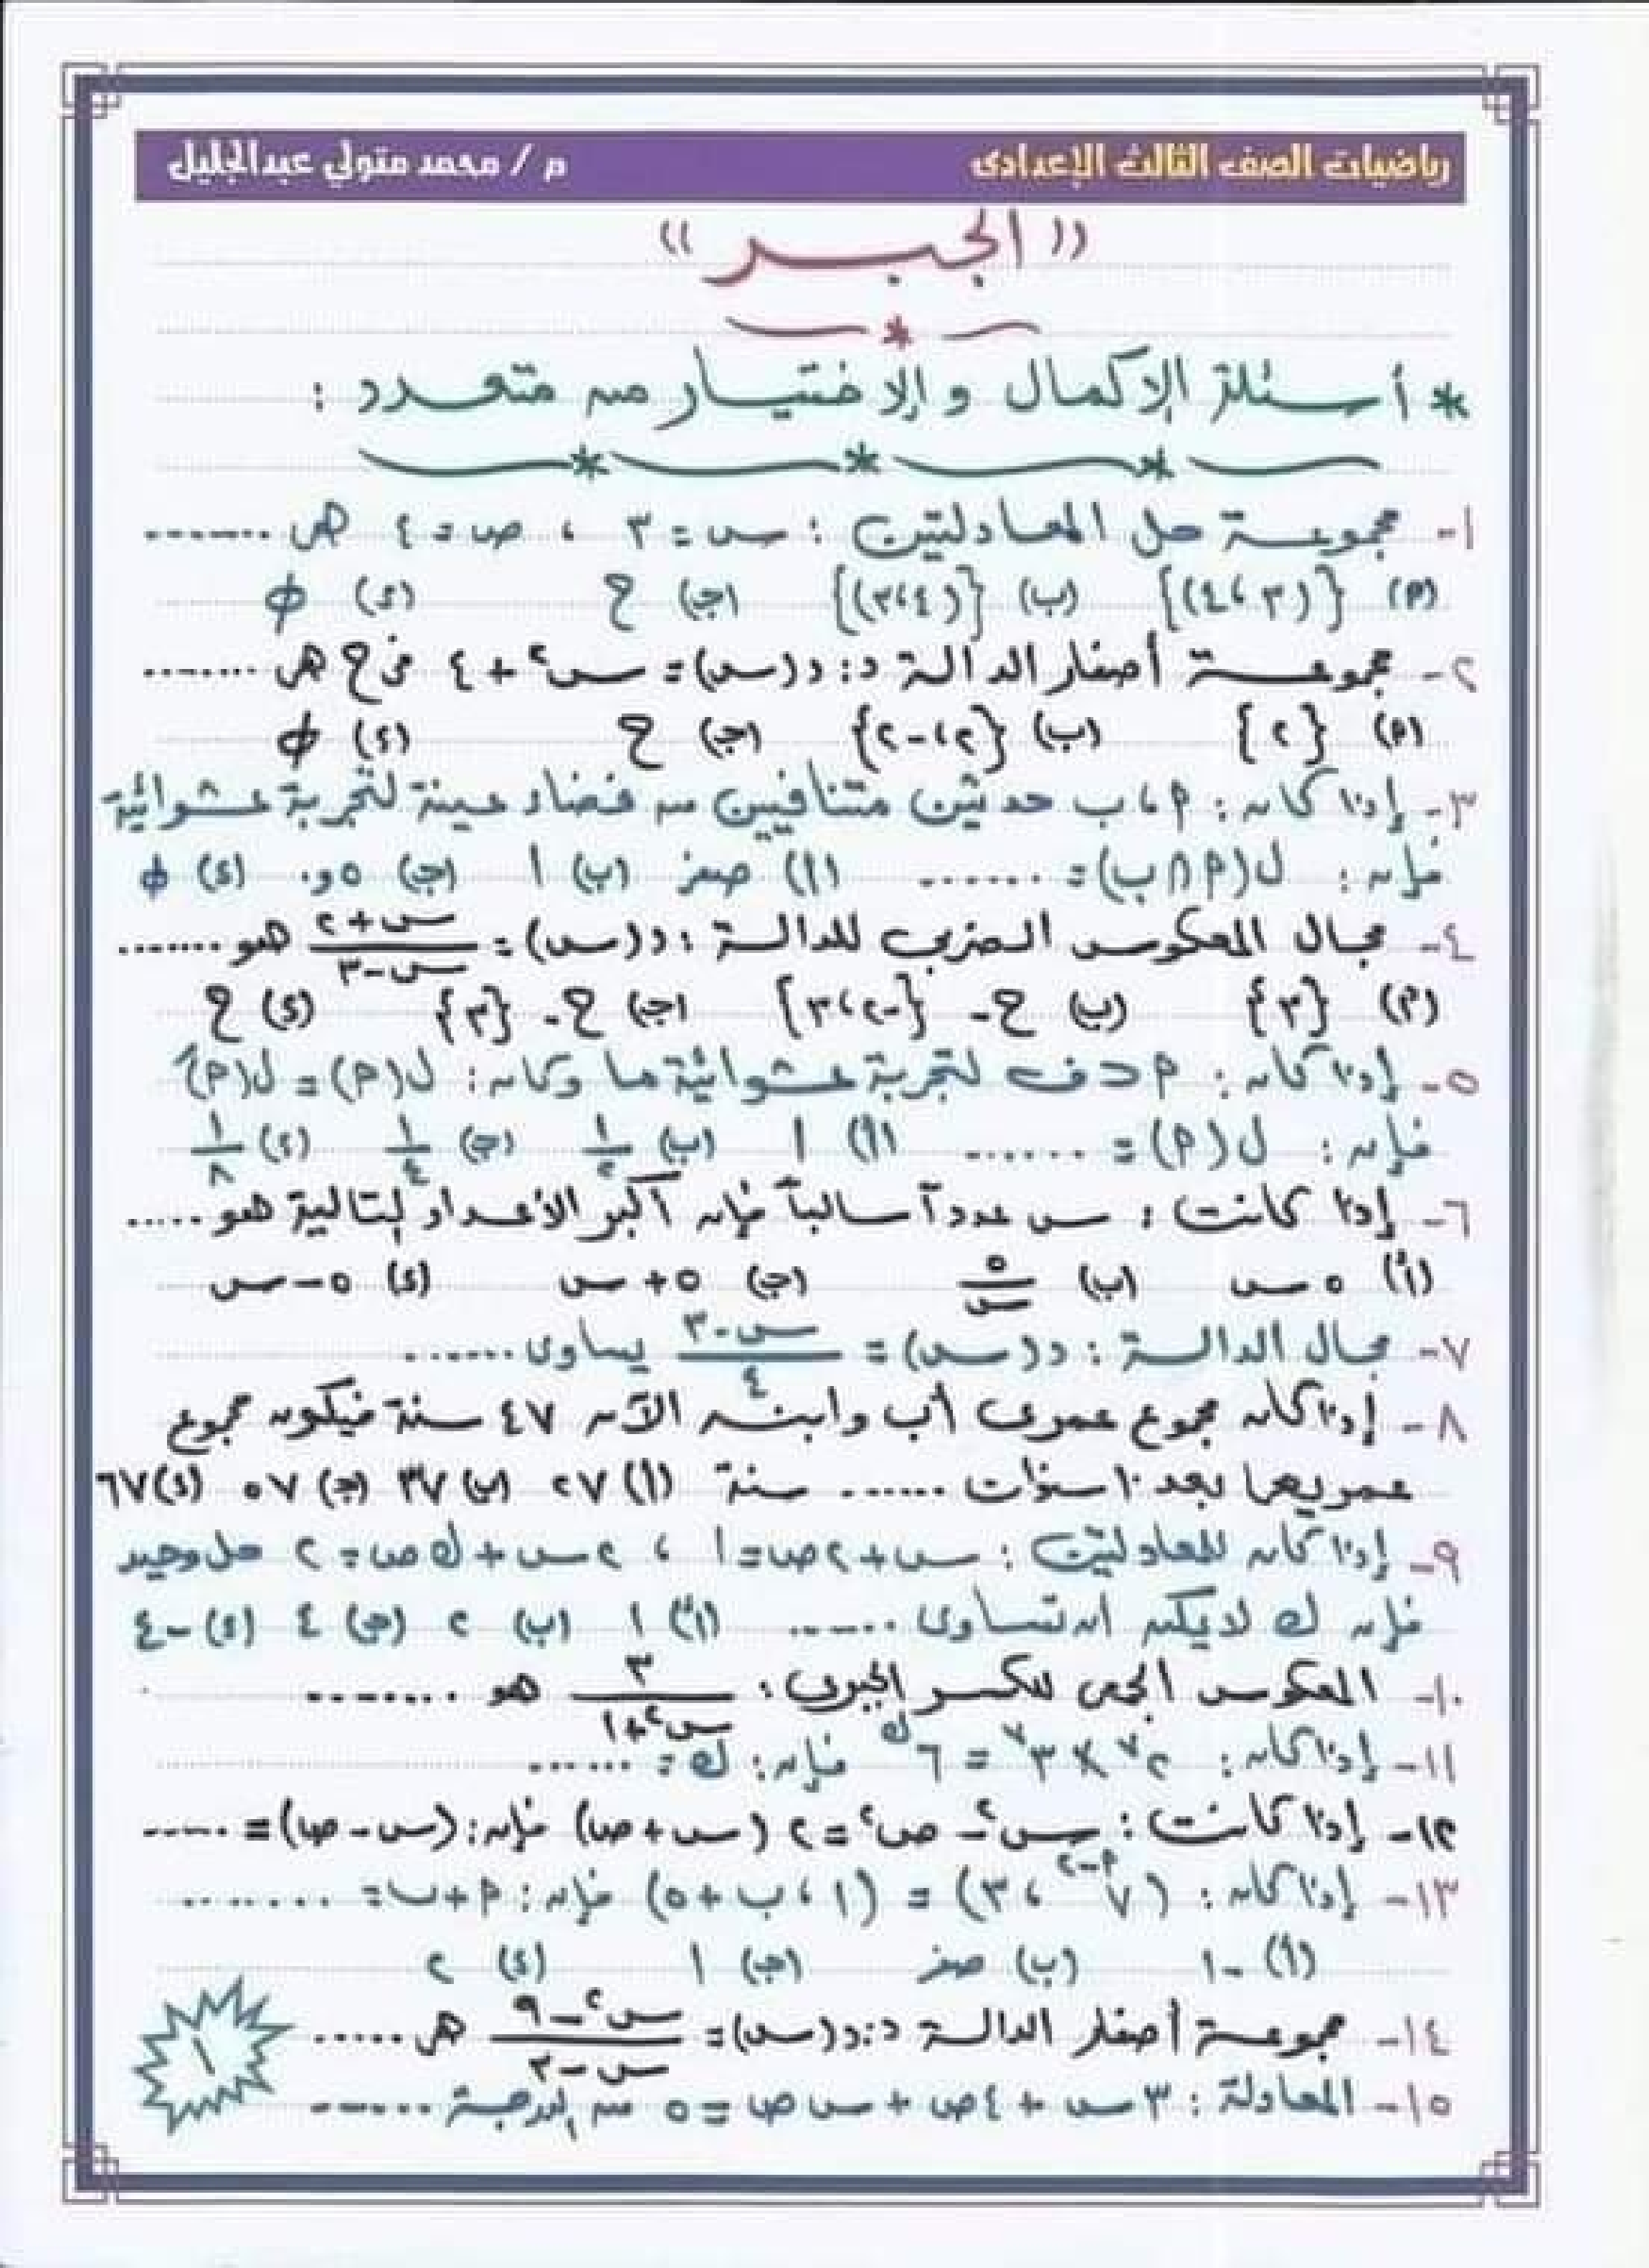 رياضيات الصف الثالث الإعدادى م / محمد متولي عبدالجليل
(( الجبـر ))
* أسئلة الإكمال والإختيار من متعدد :
١- مجموعة حل المعادلتين : س = ٣ ، ص = ٤ هى .......
(أ) {(٣،٤)} (ب) {(٤،٣)} (ج) ح (د) φ
٢- مجموعة أصفار الدالة د: د(س) = س² + ٤ فى ح هى .......
(أ) {٢} (ب) {٢،-٢} (ج) ح (د) φ
٣- إذا كان : أ، ب حدثين متنافيين من فضاء عينة لتجربة عشوائية
فإن : ل(أ∩ب) = ....... (أ) صفر (ب) ١ (ج) ٠,٥ (د) φ
٤- مجال المعكوس الضربى للدالة : د(س) = (س+٢)/(س-٣) هو .......
(أ) {٣} (ب) ح - {-٢،٣} (ج) ح - {٣} (د) ح
٥- إذا كان : أ ⊂ ف لتجربة عشوائية ما وكان : ل(أ) = ل(أَ)
فإن : ل(أ) = ....... (أ) ١ (ب) ١/٢ (ج) ١/٤ (د) ١/٨
٦- إذا كانت : س عدداً سالباً فإن أكبر الأعداد التالية هو .....
(أ) ٥س (ب) ٥/س (ج) ٥ + س (د) ٥ - س
٧- مجال الدالة : د(س) = (س-٣)/٤ يساوى .......
٨- إذا كان مجموع عمرى أب وابنه الآن ٤٧ سنة فيكون مجموع
عمريهما بعد ١٠ سنوات ....... سنة (أ) ٢٧ (ب) ٣٧ (ج) ٥٧ (د) ٦٧
٩- إذا كان للمعادلتين : س + ٢ص = ١ ، ٢س + ك ص = ٢ حل وحيد
فإن ك لايمكن ان تساوى ...... (أ) ١ (ب) ٢ (ج) ٤ (د) -٤
١٠- المعكوس الجمعى للكسر الجبرى : ٣/(س²+١) هو ........
١١- إذا كان : ٢⁷ × ٣⁷ = ٦ᵏ فإن : ك = ......
١٢- إذا كانت : س² - ص² = ٢ (س + ص) فإن : (س - ص) = .....
١٣- إذا كان : (٧^(أ-٢) ، ٣) = (١ ، ب + ٥) فإن : أ + ب = ........
(أ) -١ (ب) صفر (ج) ١ (د) ٢
١٤- مجموعة أصفار الدالة د: د(س) = (س² - ٩)/(س - ٣) هى .....
١٥- المعادلة : ٣س + ٤ص + س ص = ٥ من الدرجة ......
١